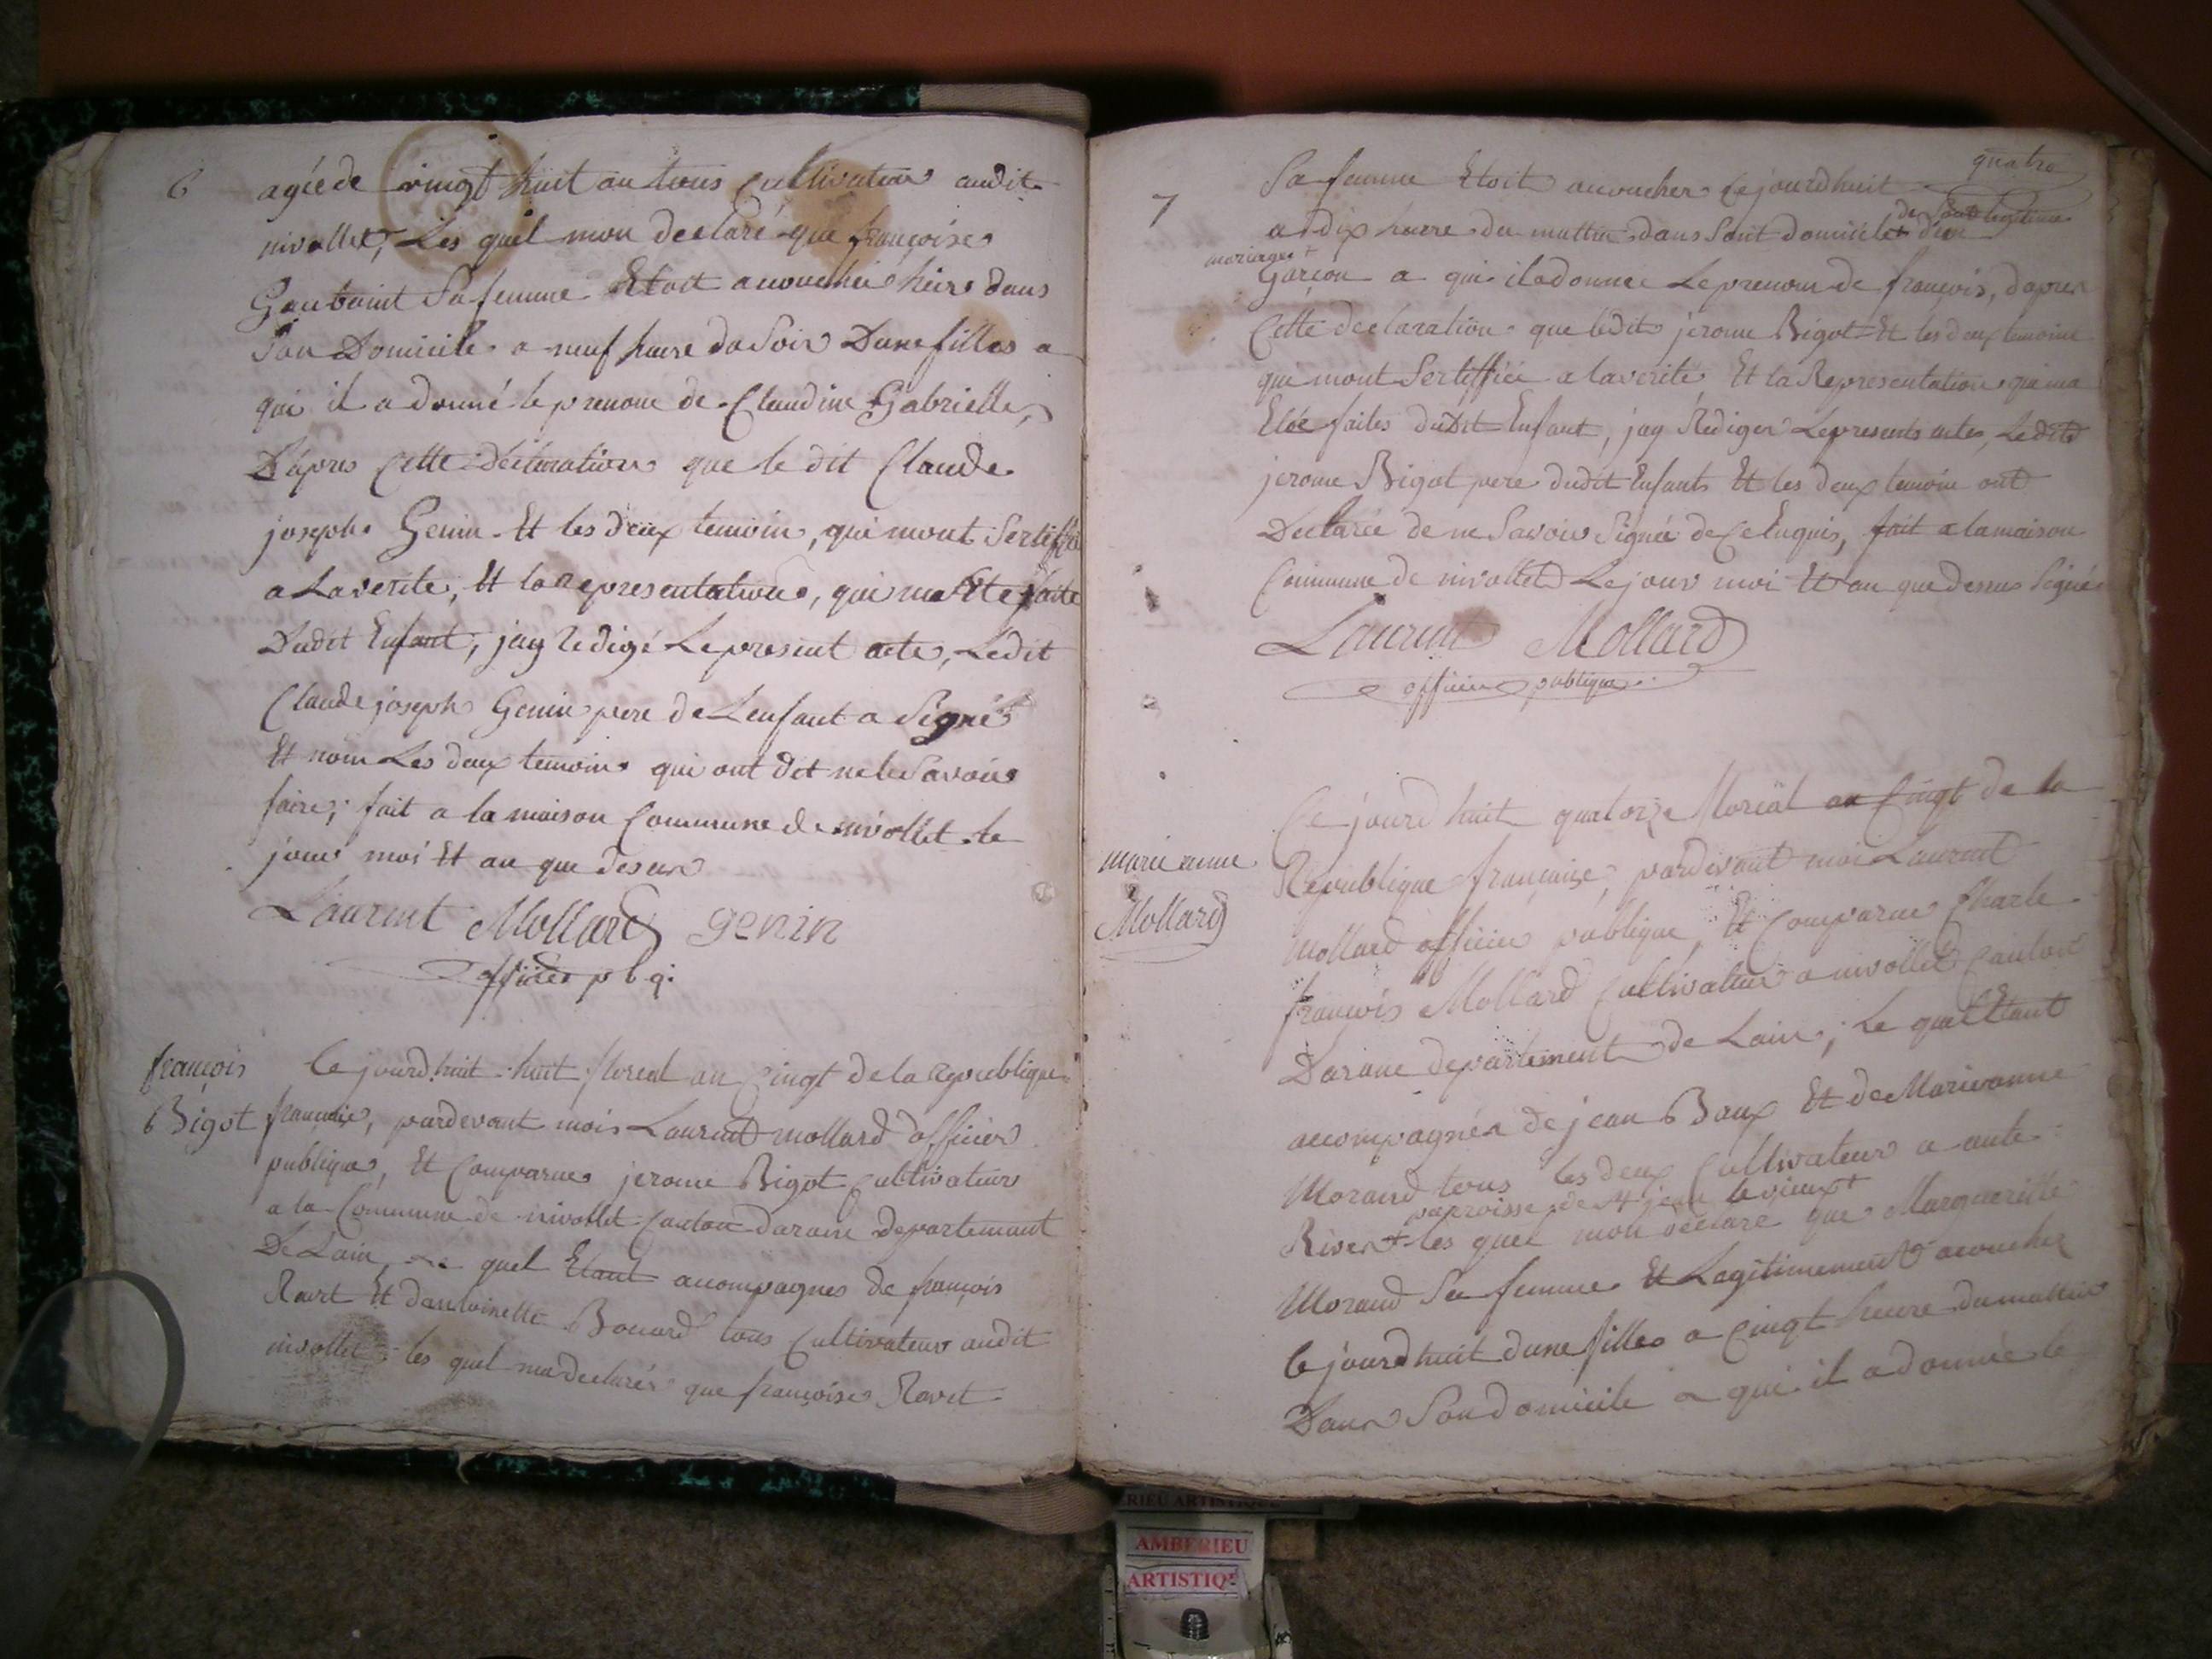 6
agée de vingt huit an tous Cultivateur audit
nivollet, Les quel mon declaré que françoise
Goubaint Sa femme Etoit acouchée hier dans
Son Domicile a neuf heure du Soir Dune filles a
qui il a donné le prenome de Claudine Gabrielle,
D'apres Cette Declaration que le dit Claude
joseph Genin Et les deux temoin, qui mont Sertiffié
a La verite, Et la representation, qui ma Eté faite
Dudit Enfant, jay redigé Le present acte, Ledit
Claude joseph Genin pere de Lenfant a Signé
Et nom Les deux temoins qui ont dit ne le Savoir
faire; fait a la maison Commune de nivollet le
jour moi Et an que desur
Laurent Mollard genin
officier p b q:
françois
Bigot
Ce jourd'huit huit floreal an Cingt de la Republique
françaie, pardevant mois Laurent mollard officier
publique, Et Comparue jerome Bigot Cultivateur
a la Commune de nivollet Canton darane departement
De Lain, Le quel Etant acompagnes de françois
Ravet Et dantoinette Bouard tous Cultivateur audit
nivollet les quel ma declarés que françoise Ravet
quatre
7
Sa femme Etoit acoucher Ce jourdhuit
de Sont legitime
a dix heure du mattin dans Sont Domicile d'un
mariages +
Garçon a qui il a donnee Le prenom de françois, dapres
Cette declaration que ledit jerome Bigot Et les deux temoins
qui mont Sertiffiée a la verité Et la Representation qui ma
Etée faites dudit Enfant, jay Rédiger Le presents actes, Ledit
jerome Bigot pere dudit Enfants Et les deux temoin ont
Declarée de ne Savoir Signée de Ce Enquis, fait a la maison
Commune de nivollet Le jour moi Et an que dessus Signé
Laurent Mollard
officier publique
marie anne
Mollard
Ce jourd huit quatorze floreal an Cingt de la
Republique française, pardevant moi Laurent
Mollard officier publique, Et Comparue Charle
françois Mollard Cultivateur a nivollet Canton
Darane departement de Lain, Le quel Etant
accompagnér de jean Baux Et de Marieanne
Morand tous les deux Cultivateur a aute
paproisse de St jean le vieux +
River + les quel mon declare que Margueritte
Morand Sa femme Et Legitimement acoucher
Ce jourdhuit dune filles a Cingt heure du mattin
Dans Son domicile a qui il a donnée le
AMBERIEU
ARTISTIQUE